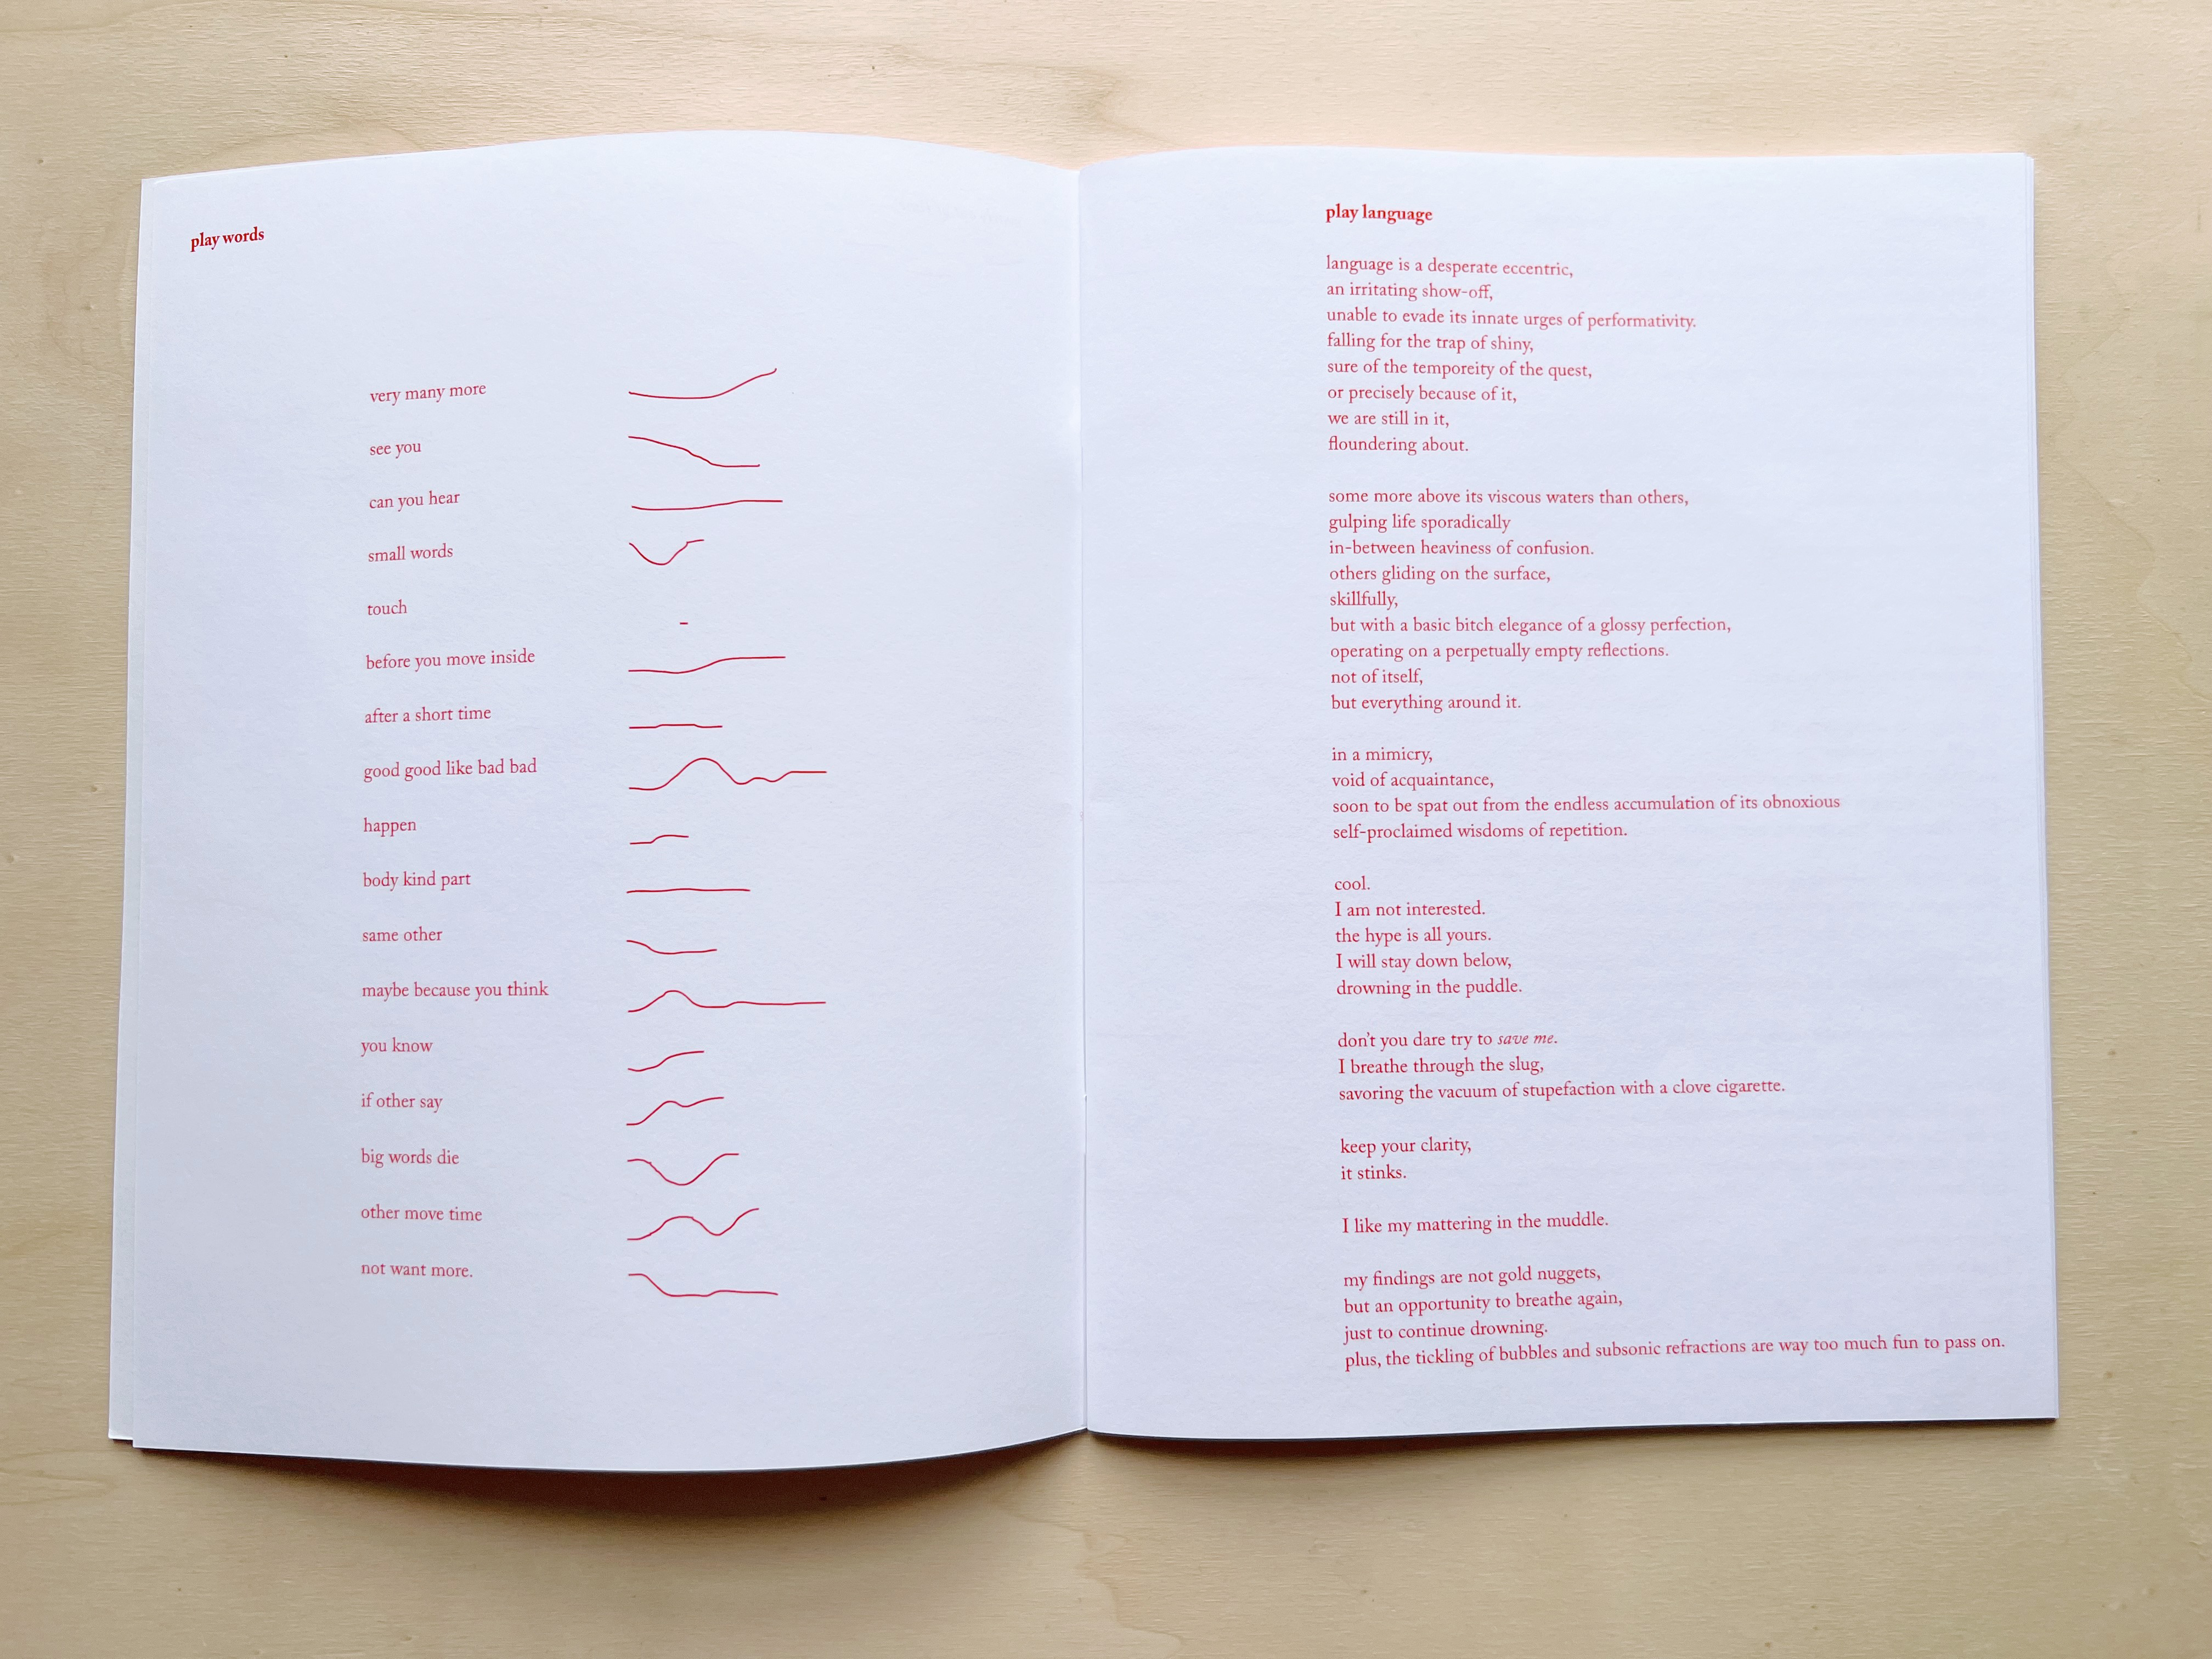 play words
very many more
see you
can you hear
small words
touch
before you move inside
after a short time
good good like bad bad
happen
body kind part
same other
maybe because you think
you know
if other say
big words die
other move time
not want more.
play language
language is a desperate eccentric,
an irritating show-off,
unable to evade its innate urges of performativity.
falling for the trap of shiny,
sure of the temporeity of the quest,
or precisely because of it,
we are still in it,
floundering about.
some more above its viscous waters than others,
gulping life sporadically
in-between heaviness of confusion.
others gliding on the surface,
skillfully,
but with a basic bitch elegance of a glossy perfection,
operating on a perpetually empty reflections.
not of itself,
but everything around it.
in a mimicry,
void of acquaintance,
soon to be spat out from the endless accumulation of its obnoxious
self-proclaimed wisdoms of repetition.
cool.
I am not interested.
the hype is all yours.
I will stay down below,
drowning in the puddle.
don't you dare try to save me.
I breathe through the slug,
savoring the vacuum of stupefaction with a clove cigarette.
keep your clarity,
it stinks.
I like my mattering in the muddle.
my findings are not gold nuggets,
but an opportunity to breathe again,
just to continue drowning.
plus, the tickling of bubbles and subsonic refractions are way too much fun to pass on.